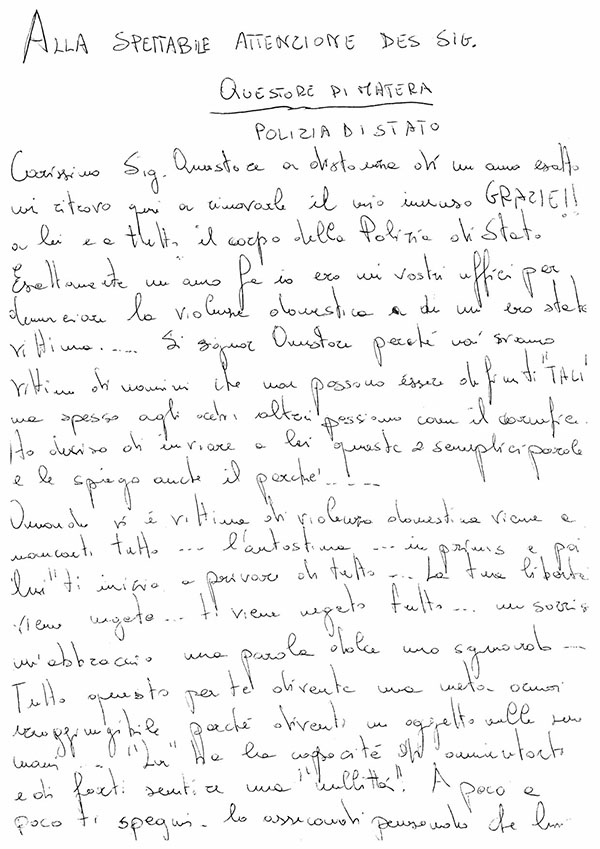 ALLA SPETTABILE ATTENZIONE DES SIG.
QUESTORE DI MATERA
POLIZIA DI STATO
Carissimo Sig. Questore a distanza di un anno esatto
mi ritrovo qui a rinnovarle il mio immenso GRAZIE!!
a lei e a tutto il corpo della Polizia di Stato
Esattamente un anno fa io ero nei vostri uffici per
denunciare la violenza domestica di cui ero stata
vittima..... Si signor Questore perché noi siamo
vittime di uomini che non possono essere definiti "TALI"
ma spesso agli occhi altrui passiamo come il carnefice.
Ho deciso di inviare a lei queste 2 semplici parole
e le spiego anche il perché.....
Quando si é vittima di violenza domestica viene a
mancarti tutto... l'autostima... in primis e poi
"lui" ti inizia a privare di tutto... La tua libertà
viene negata... ti viene negato tutto... un sorris
un'abbraccio una parola dolce uno sguardo...
Tutto questo per te diventa una meta ormai
irraggiungibile perché diventi un oggetto nelle sue
mani... "Lui" ha la capacità di annientarti
e di farti sentire una "nullittà". A poco a
poco ti spegni. lo assecondi pensando che lui